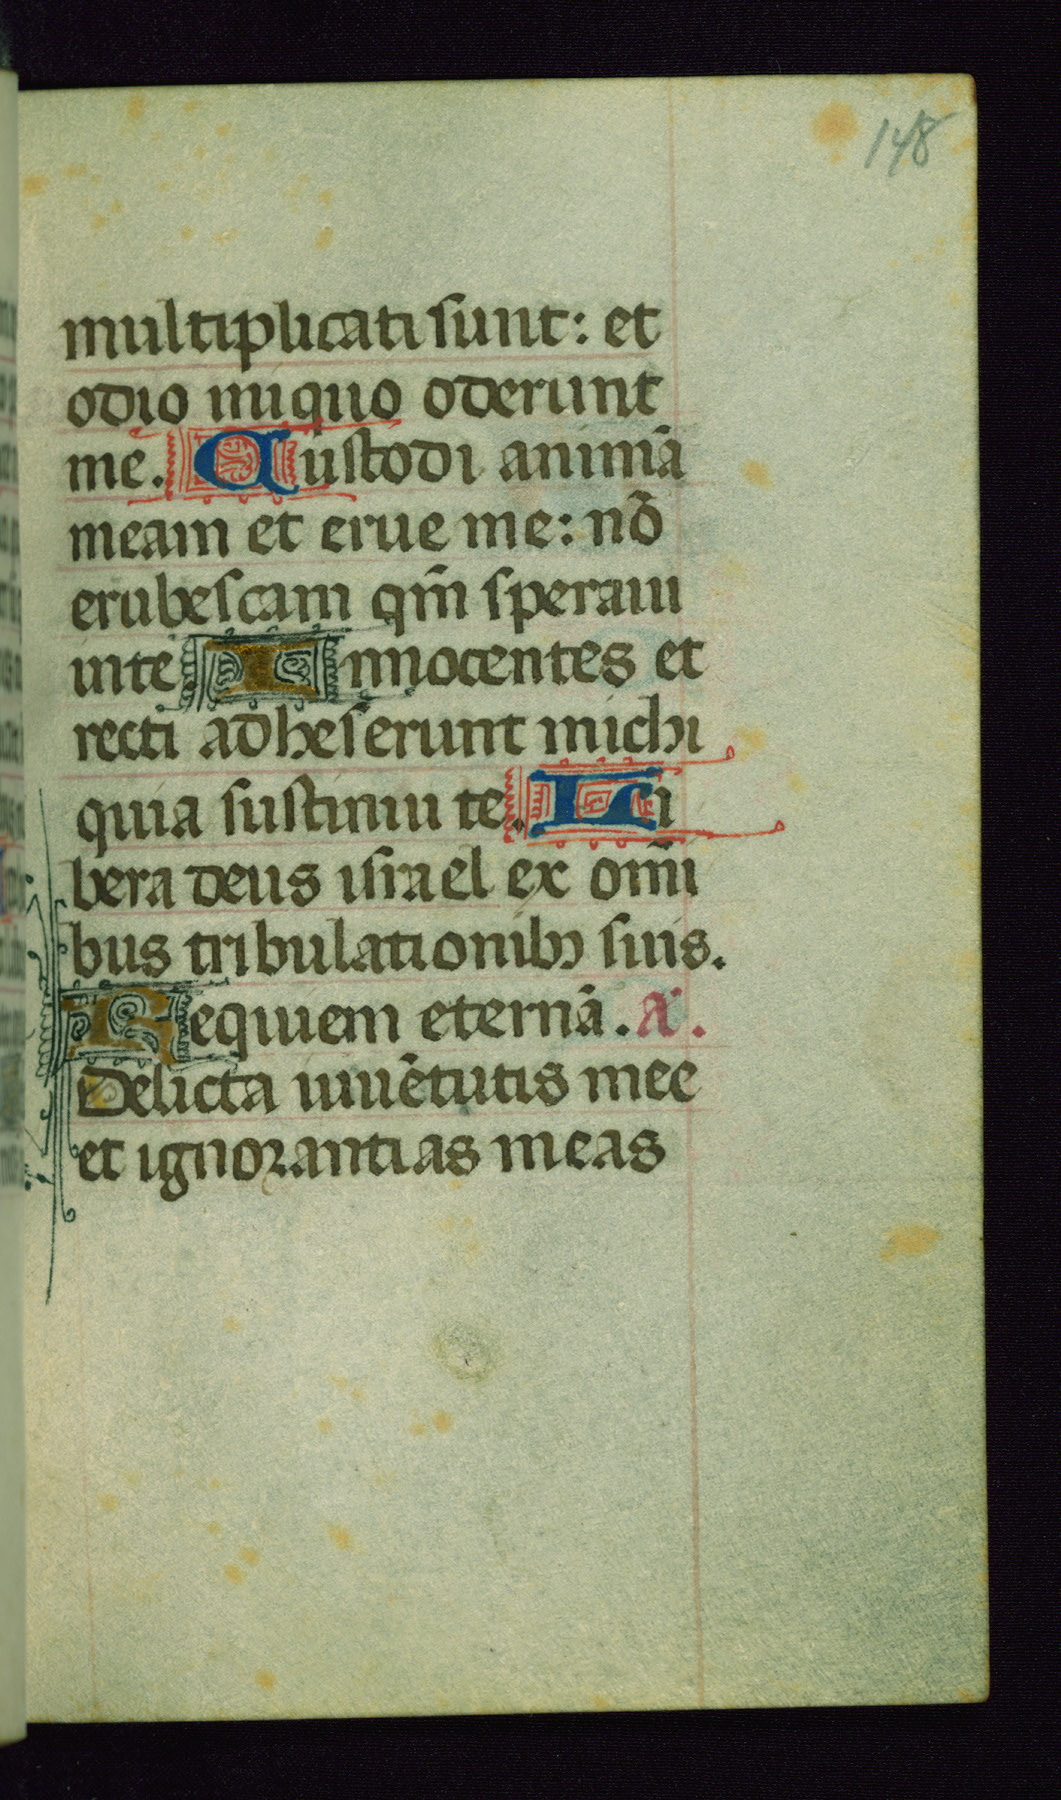 148
multiplicati sunt: et
odio iniquo oderunt
me. Custodi animā
meam et erue me: nō
erubescam qm̄ speraui
inte Innocentes et
recti adheserunt michi
quia sustinui te. Li
bera deus israel ex om̄i
bus tribulationibꝫ suis.
Requiem eternā. A.
Delicta iuuētutis mee
et ignorantias meas